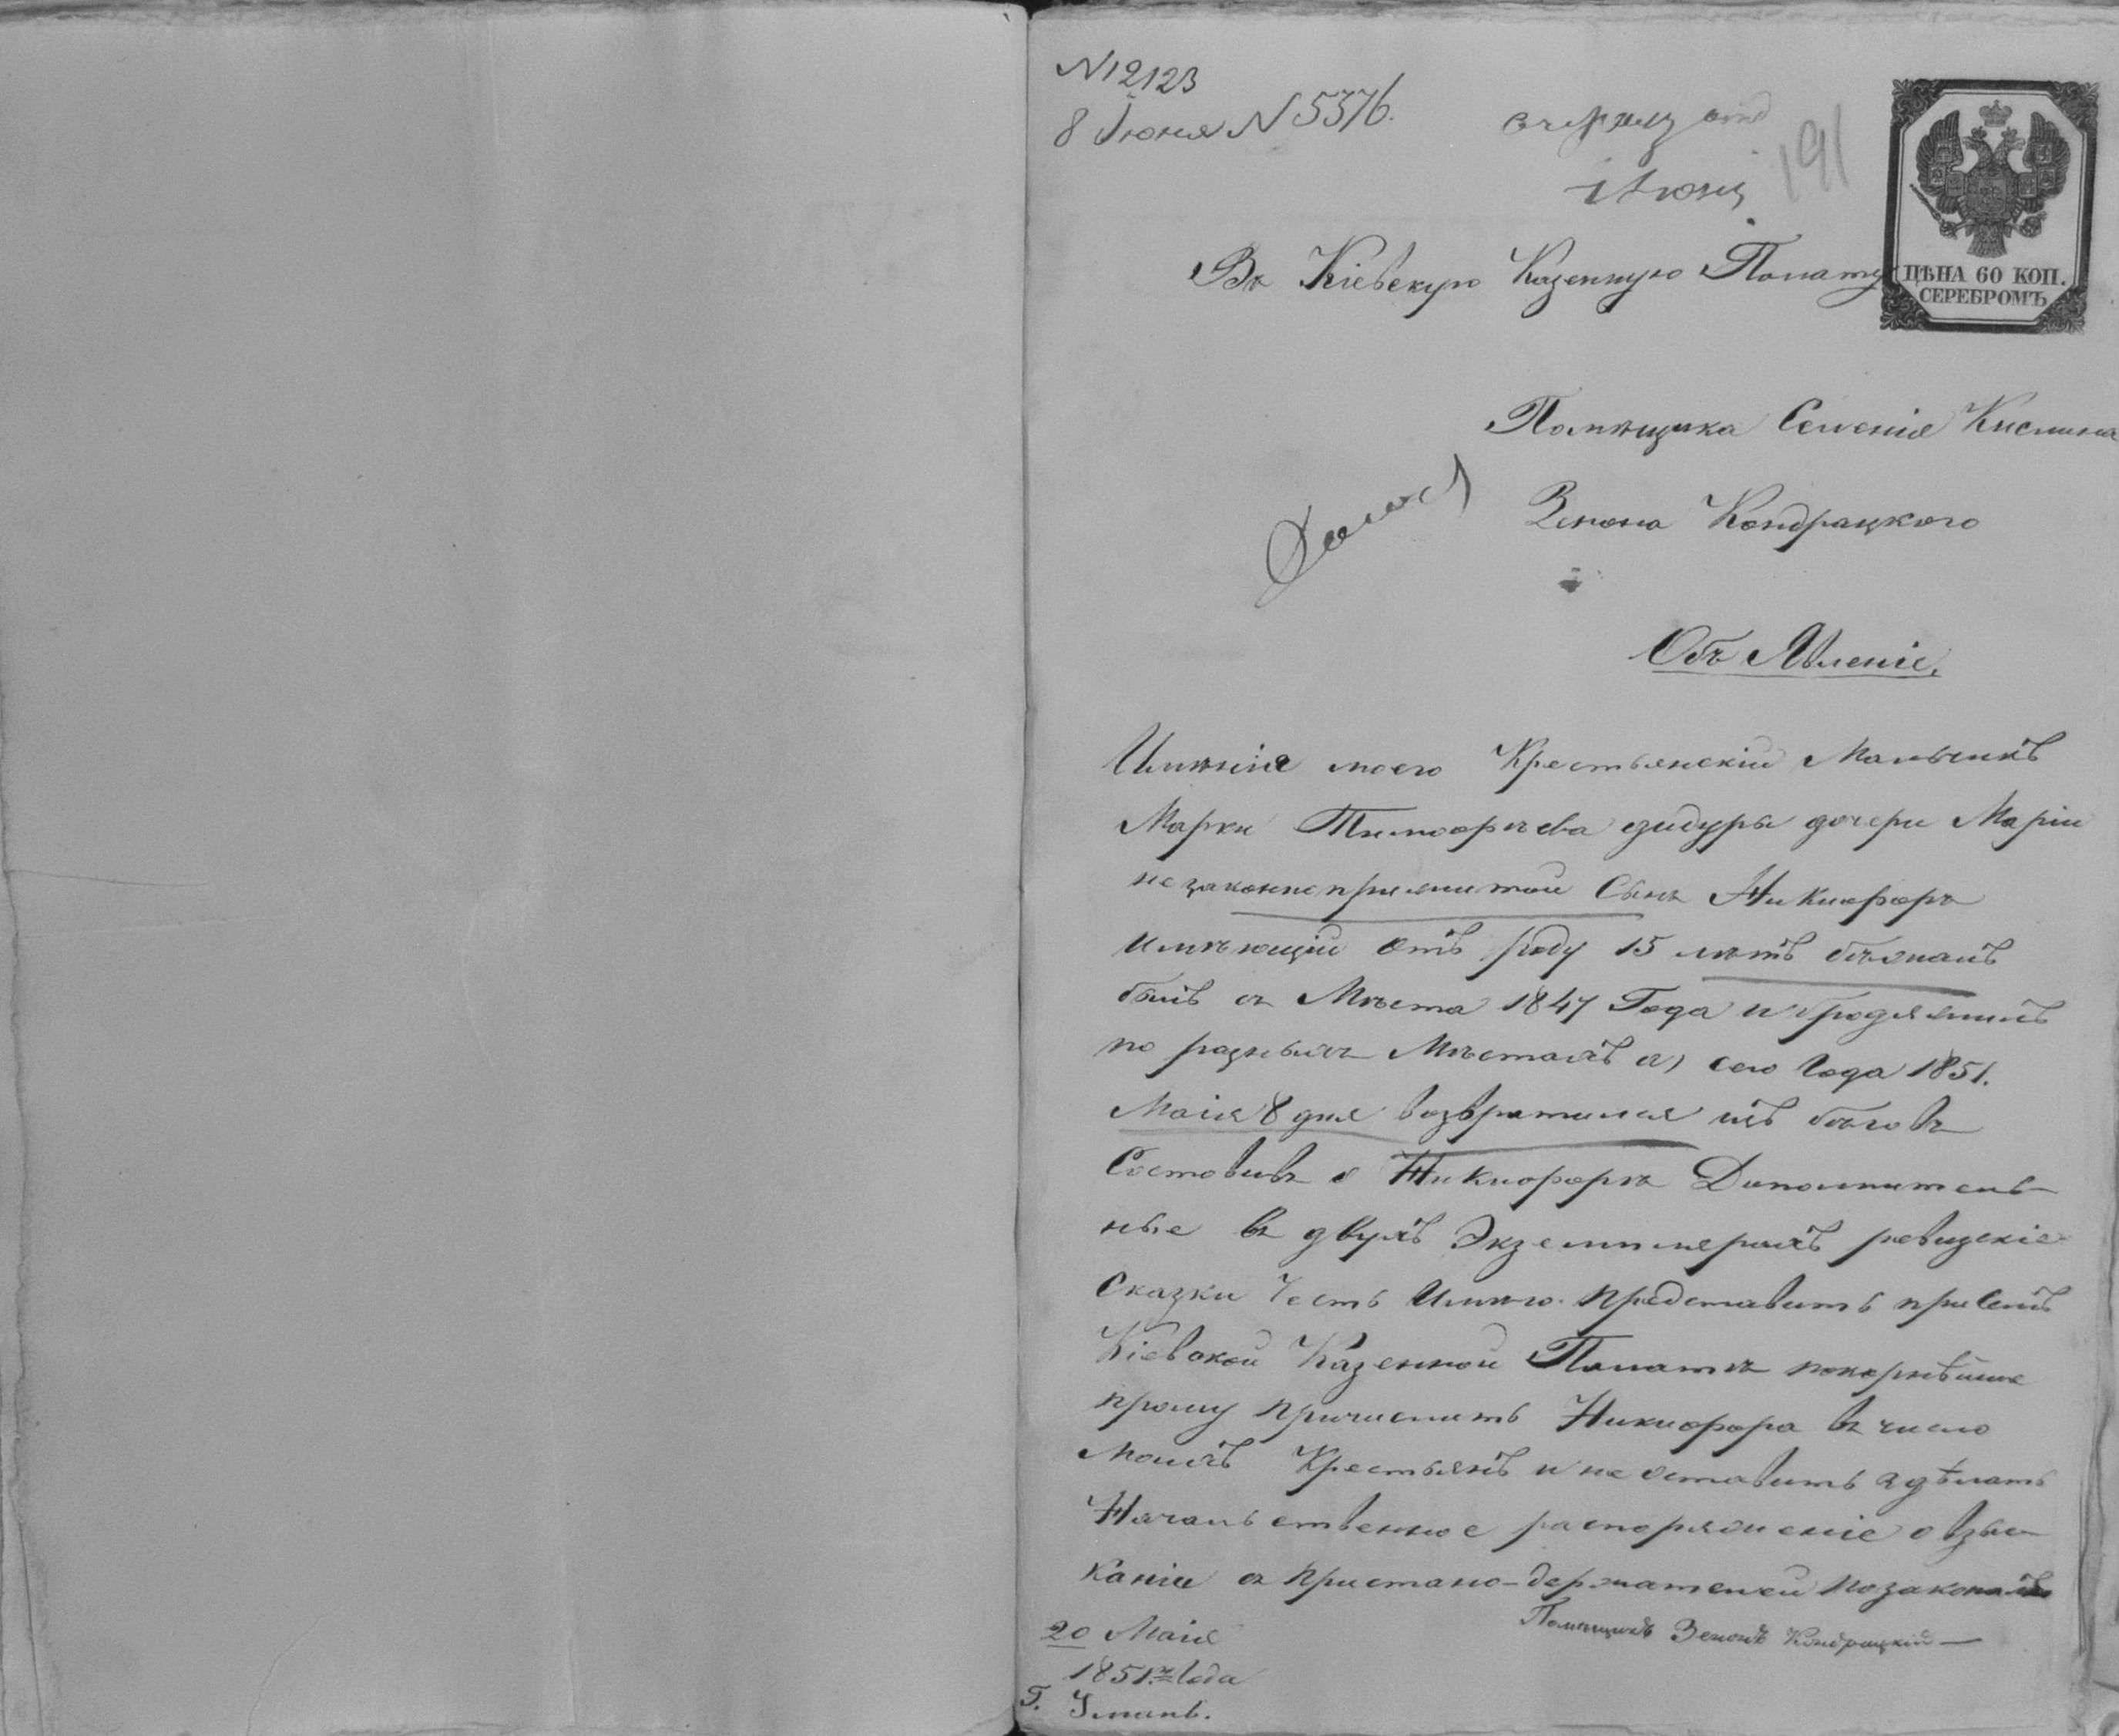 N 12123
8 Іюня N 5376.
191
ЦѢНА 60 КОП.
СЕРЕБРОМЪ
Въ Кіевскую Казенную Полату
Помѣщика Селенія Кислина
Зенона Кондрацкого
Объ Явленіе.
Имѣнія моего Крестьянскій Мальчикъ
Марки Тимофѣева дочери Маріи
незаконноприжитой Сынъ Никифоръ
имѣющій отъ роду 15 лѣтъ бѣжалъ
былъ съ Мѣста 1847 Года и
по разнымъ Мѣстамъ а) сего Года 1851.
Маія 8 дня возвратился изъ бѣговъ
Составивъ о Никифорѣ Дополнитель-
ные въ двухъ Экземплярахъ ревизскіе
Сказки Честь Имѣю представить при семъ
Кіевской Казенной Полатѣ покорнѣйше
прошу причислить Никифора въ число
моихъ Крестьянъ и не оставить здѣлать
Начальственное распоряженіе о взыс-
каніи съ пристано-держателей позаконамъ
Помѣщикъ Зенонъ Кондрацкій
20 Маія
1851.го Года
Г. Умань.